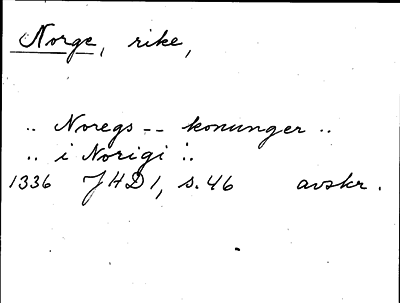 Norge, rike,
.. Noregs -- konunger ..
.. i Norigi ..
1336 JHD 1, s. 46 avskr.